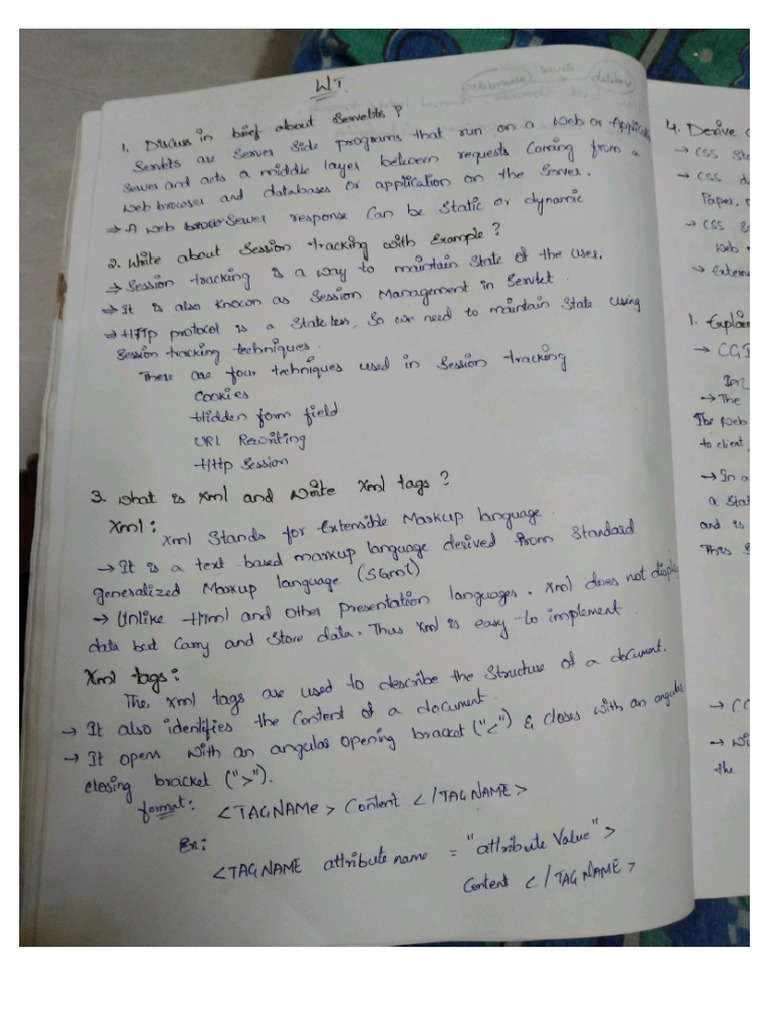 WT.
1. Discuss in brief about Servelts ?
Servlets are Server Side programs that run on a Web or Applica
Server and acts a middle layer between requests Coming from a
web browser and databases or application on the Server.
→ A web Server response Can be Static or dynamic
2. Write about Session tracking with Example ?
→ Session tracking is a way to maintain State of the user.
→ It is also known as Session Management in Servlet.
→ Http protocol is a Stateless, So we need to maintain State using
Session tracking techniques.
There are four techniques used in Session tracking
Cookies
Hidden form field
URL Rewriting
Http Session
3. What is Xml and Write Xml tags ?
Xml :
Xml Stands for Extensible Markup language.
→ It is a text-based markup language derived from Standard
generalized Markup language (SGml)
→ Unlike Html and other presentation languages. Xml does not display
data but Carry and Store data. Thus Xml is easy to implement.
Xml tags :
The Xml tags are used to describe the Structure of a document.
→ It also identifies the Content of a document.
→ It opens with an angular opening bracket ("<") & closes with an angular
closing bracket (">").
format : <TAGNAMe> Content </TAGNAME>
Ex :
<TAGNAME attribute name = "attribute Value">
Content </TAGNAME>
4. Derive
→ CSS
→ CSS
Paper,
→ CSS
web
→ Extern
1. Explain
→ CGI
→ The
The Web
to client,
→ In a
a Stat
and is
This
→
→
the